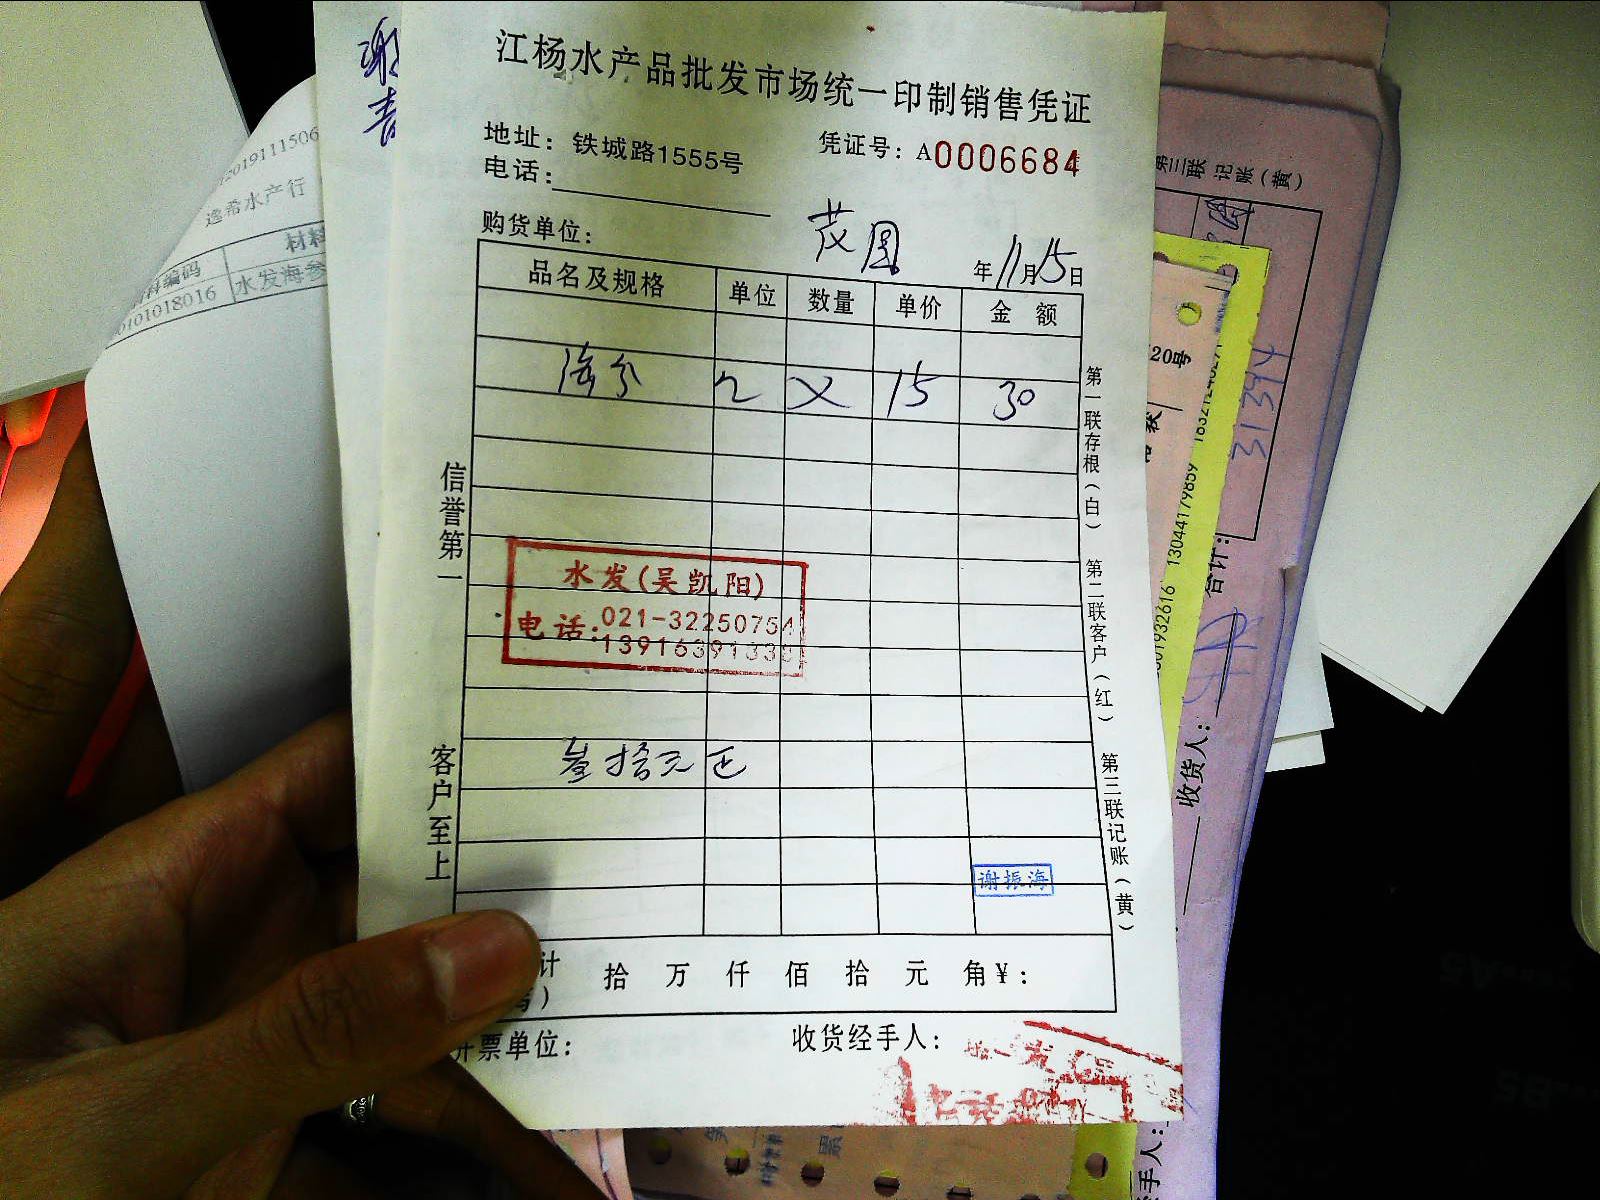 江杨水产品批发市场统一印制销售凭证
地址：铁城路1555号
凭证号：A0006684
电话：
购货单位：
茂园
年11月15日
品名及规格 单位 数量 单价 金额
海参 2 15 30
信誉第一
客户至上
水发(吴凯阳)
电话:021-32250754
叁拾元正
谢振海
计 拾 万 仟 佰 拾 元 角 ¥：
开票单位：
收货经手人：
第一联存根(白)
第二联客户(红)
第三联记账(黄)
谢
2019111506
逸希水产行
材料
料编码
水发海参
0101018016
第三联 记账(黄)
20号
13044179859
合计：
收货人：
手人：